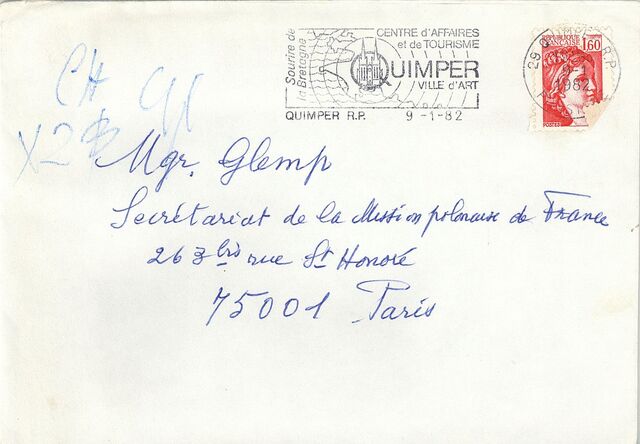 Sourire de
la Bretagne
CENTRE d'AFFAIRES
et de TOURISME
QUIMPER
VILLE d'ART
QUIMPER R.P. 9-1-82
29 QUIMPER R.P.
1982
REPUBLIQUE
FRANCAISE 1,60
POSTES
CH
x2
Mgr. Glemp
Secrétariat de la Mission polonaise de France
263 bis rue St Honoré
75001 Paris